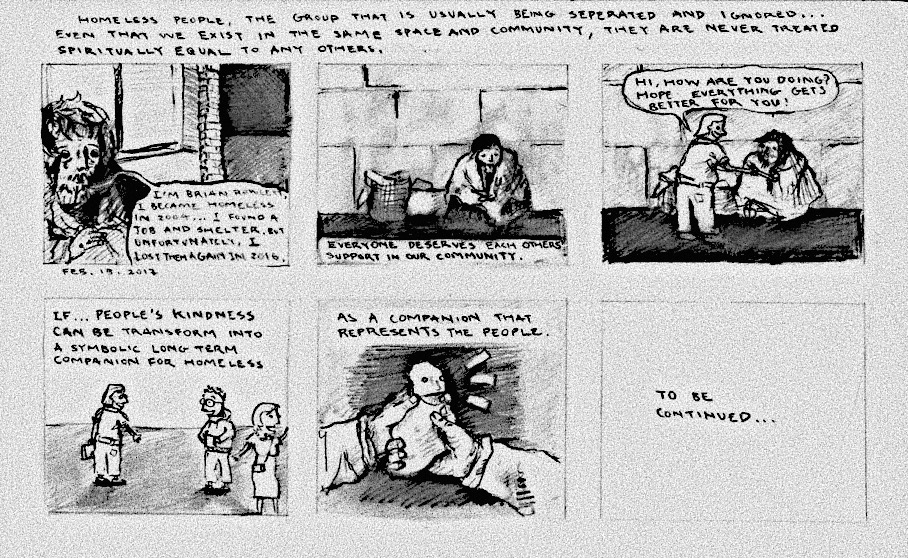 HOMELESS PEOPLE, THE GROUP THAT IS USUALLY BEING SEPERATED AND IGNORED...
EVEN THAT WE EXIST IN THE SAME SPACE AND COMMUNITY, THEY ARE NEVER TREATED
SPIRITUALLY EQUAL TO ANY OTHERS.
I'M BRIAN
I BECAME HOMELESS
IN 2004... I FOUND A
JOB AND SHELTER. BUT
UNFORTUNATELY, I
LOST THEM AGAIN IN 2016.
FEB. 19. 2017
EVERYONE DESERVES EACH OTHERS'
SUPPORT IN OUR COMMUNITY.
HI, HOW ARE YOU DOING?
HOPE EVERYTHING GETS
BETTER FOR YOU!
IF... PEOPLE'S KINDNESS
CAN BE TRANSFORM INTO
A SYMBOLIC LONG TERM
COMPANION FOR HOMELESS
AS A COMPANION THAT
REPRESENTS THE PEOPLE.
TO BE
CONTINUED...